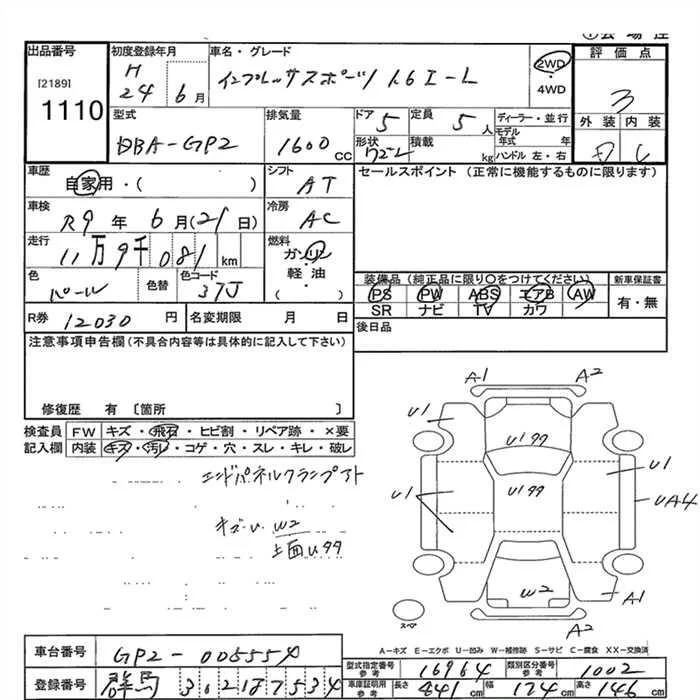 出品番号
[2189]
1110
初度登録年月
H
24 6 月
車名・グレード
インプレッサスポーツ 1.6 I-L
2WD
4WD
評価点
3
外装 内装
D C
型式
DBA-GP2
排気量
1600 cc
ドア 5
形状 ワゴン
定員 5 人
積載 kg
ディーラー・並行
モデル年式 年
ハンドル 左・右
車歴
自家用・( )
シフト
AT
セールスポイント (正常に機能するものに限ります)
車検
R9 年 6 月(21 日)
冷房
AC
走行
11万9千081 km
燃料
ガソリン
軽・油
( )
色
パール
色替
色コード
37J
装備品(純正品に限り○をつけてください)
PS PW ABS エアB AW
SR ナビ TV カワ
新車保証書
有・無
R券 12030 円
名変期限 月 日
後日品
注意事項申告欄(不具合内容等は具体的に記入して下さい)
修復歴 有〔箇所 〕
検査員 FW キズ・飛石・ヒビ割・リペア跡・×要
記入欄 内装 キズ・汚レ・コゲ・穴・スレ・キレ・破レ
エンドパネルクランプアト
キズ・U W2
上面U99
A1 A2
U1
U199
U1
U1
U199
UA4
W2
A1
A2
スペア
A－キズ E－エクボ U－凹み W－補修跡 S－サビ C－腐食 XX－交換済
車台番号 GP2-005554
登録番号 群馬 302187534
型式指定番号 参考 16964
類別区分番号 参考 1002
車庫証明用 参考 長さ 441 cm 幅 174 cm 高さ 146 cm